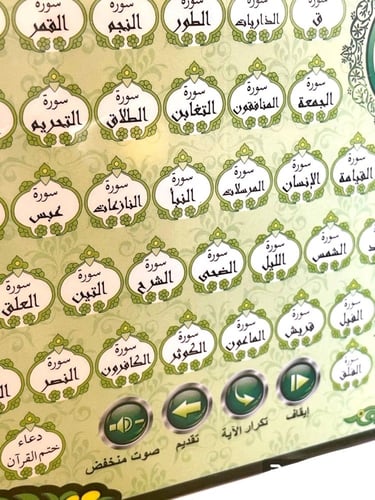 سورة ق
سورة الذاريات
سورة الطور
سورة النجم
سورة القمر
سورة الجمعة
سورة المنافقون
سورة التغابن
سورة الطلاق
سورة التحريم
سورة القيامة
سورة الإنسان
سورة المرسلات
سورة النبأ
سورة النازعات
سورة عبس
سورة الشمس
سورة الليل
سورة الضحى
سورة الشرح
سورة التين
سورة العلق
سورة الفيل
سورة قريش
سورة الماعون
سورة الكوثر
سورة الكافرون
سورة النصر
سورة الفلق
إيقاف
تكرار الآية
تقديم
صوت منخفض
دعاء
ختم القرآن